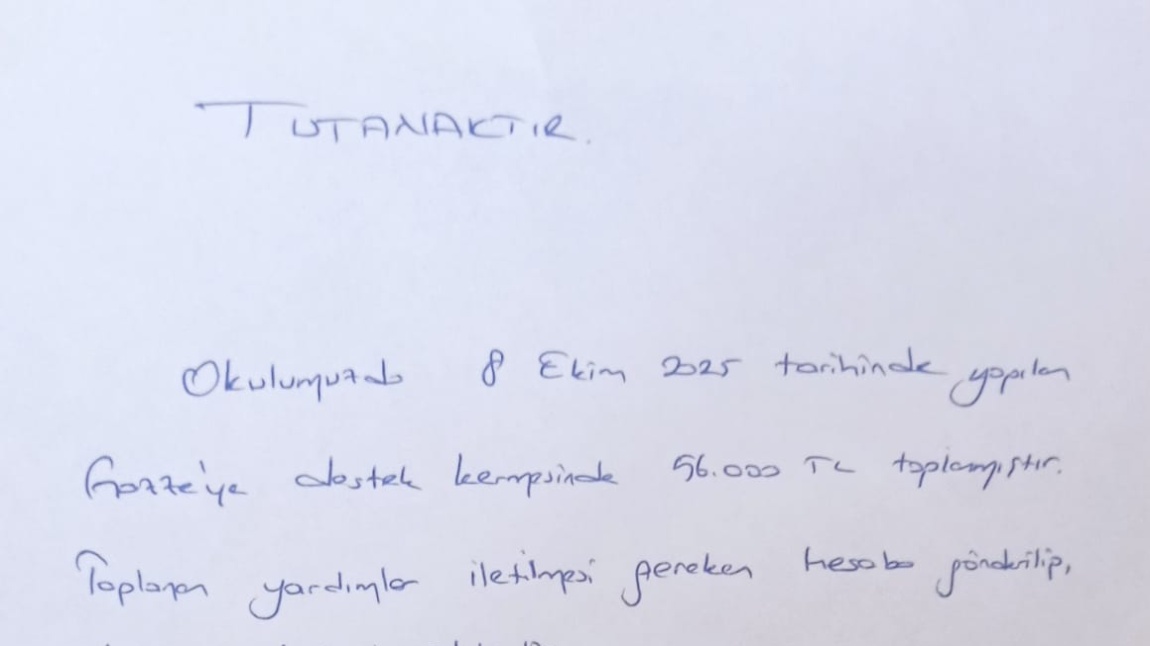 TUTANAKTIR.
Okulumuzda 8 Ekim 2025 tarihinde yapılan
Gazze'ye destek kermesinde 56.000 TL toplanmıştır.
Toplanan yardımlar iletilmesi gereken hesaba gönderilip,